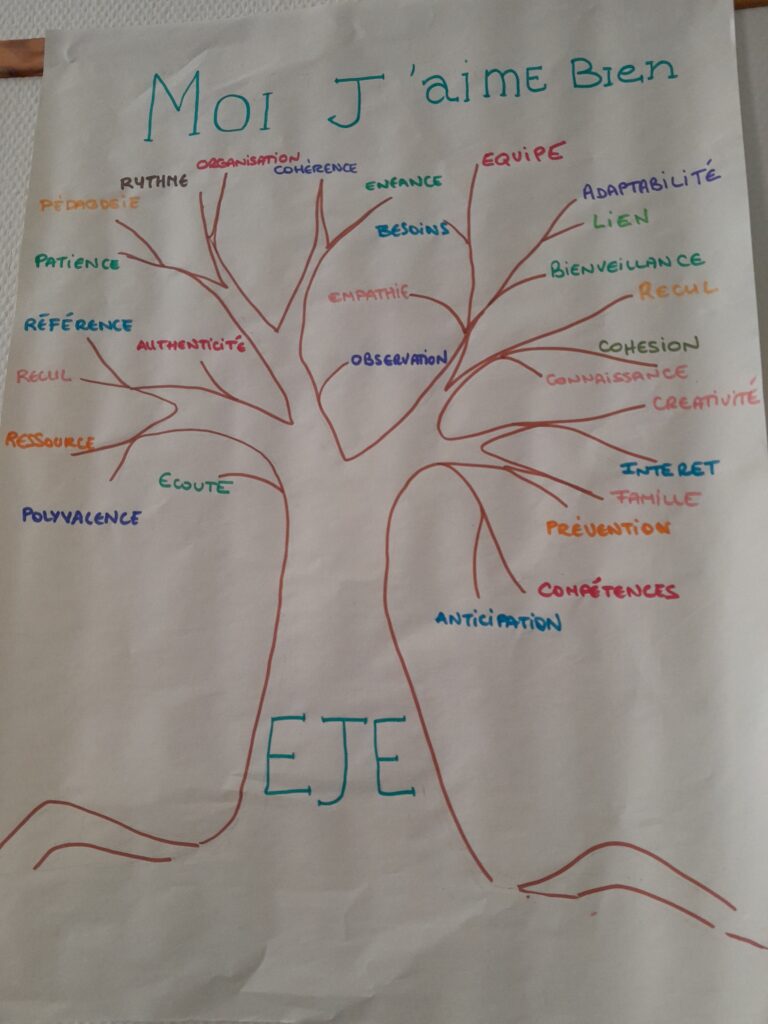 MOI J'AIME BIEN
ORGANISATION
COHÉRENCE
EQUIPE
RYTHME
ENFANCE
ADAPTABILITÉ
PÉDAGOGIE
BESOINS
LIEN
PATIENCE
BIENVEILLANCE
EMPATHIE
RECUL
RÉFÉRENCE
AUTHENTICITÉ
OBSERVATION
COHESION
RECUL
CONNAISSANCE
CREATIVITÉ
RESSOURCE
ECOUTE
INTERET
FAMILLE
POLYVALENCE
PRÉVENTION
COMPÉTENCES
ANTICIPATION
EJE